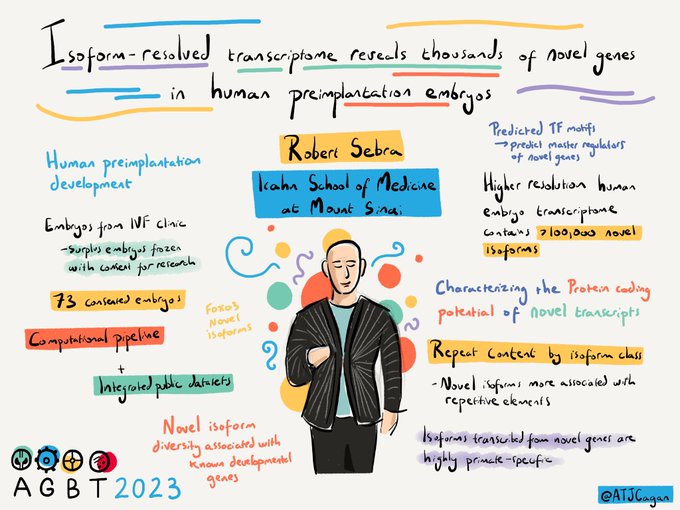 Isoform-resolved transcriptome reveals thousands of novel genes
in human preimplantation embryos
Robert Sebra
Icahn School of Medicine
at Mount Sinai
Human preimplantation
development
Embryos from IVF clinic
-Surplus embryos frozen
with consent for research
73 consented embryos
Computational pipeline
+
Integrated public datasets
Foxo3
novel
isoforms
Novel isoform
diversity associated with
known developmental
genes
Predicted TF motifs
→ predict master regulators
of novel genes
Higher resolution human
embryo transcriptome
contains >100,000 novel
isoforms
Characterizing the Protein coding
potential of novel transcripts
Repeat Content by isoform class
- Novel isoforms more associated with
repetitive elements
Isoforms transcribed from novel genes are
highly primate-specific
AGBT 2023
@ATJCagan